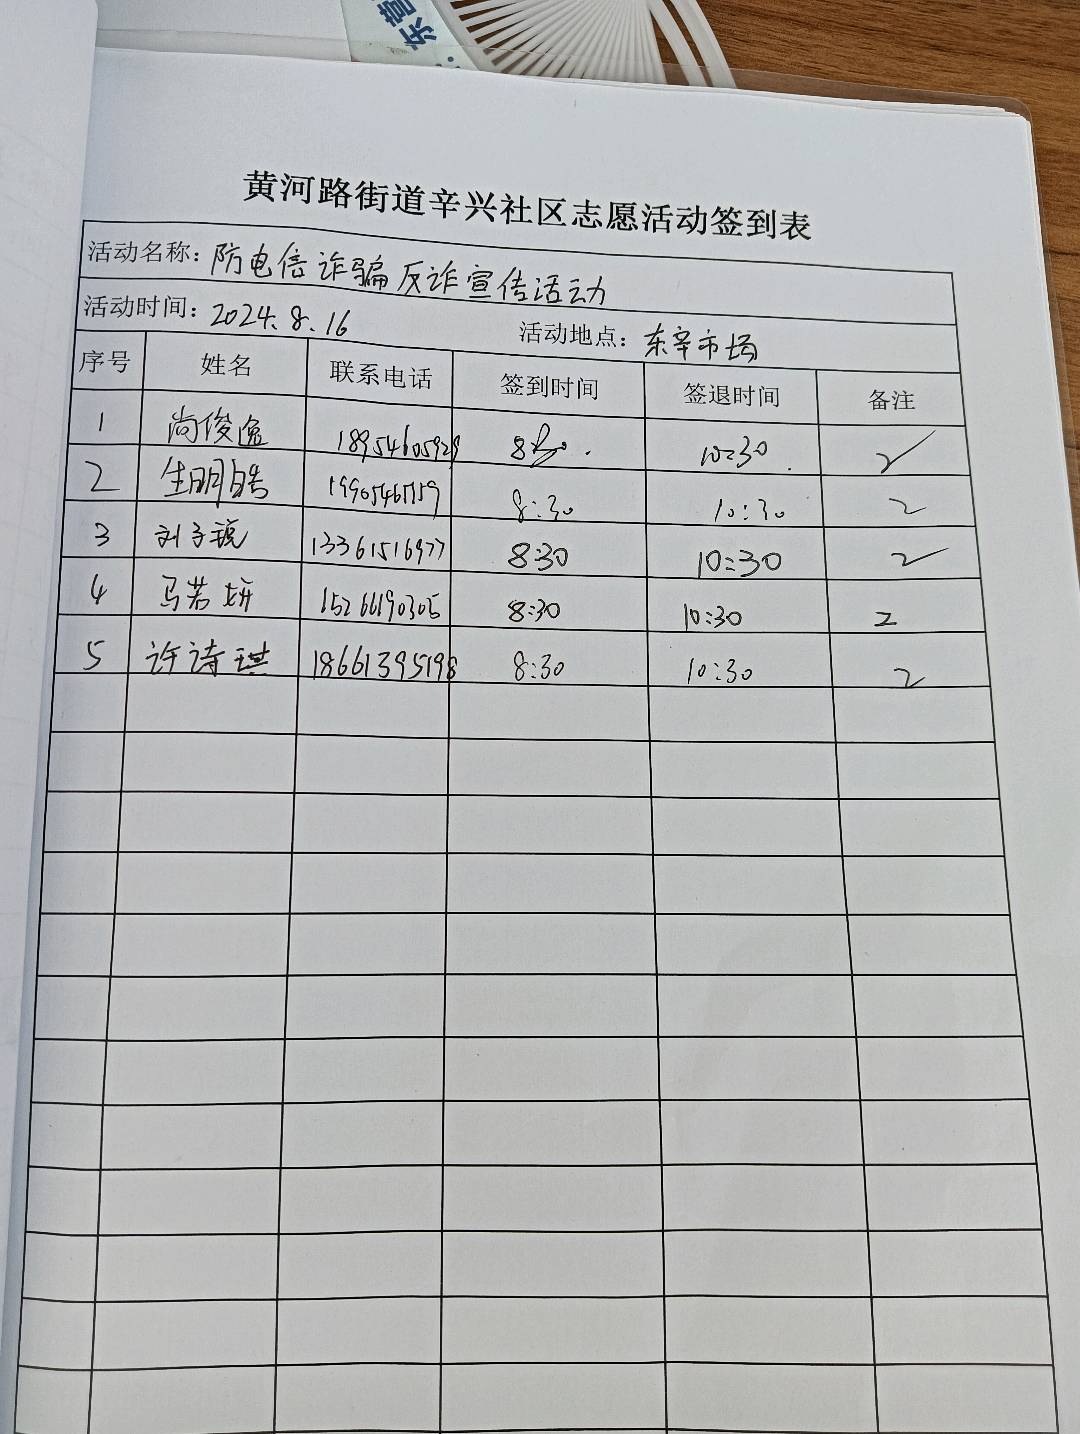 东营
黄河路街道辛兴社区志愿活动签到表
活动名称：防电信诈骗反诈宣传活动
活动时间：2024.8.16 活动地点：东辛市场
序号 姓名 联系电话 签到时间 签退时间 备注
1 尚俊逸 18954605929 10:30 2
2 生明皓 8:30 10:30 2
3 刘子琬 13361516977 8:30 10:30 2
4 马若妍 15266190305 8:30 10:30 2
5 许诗琪 18661395198 8:30 10:30 2